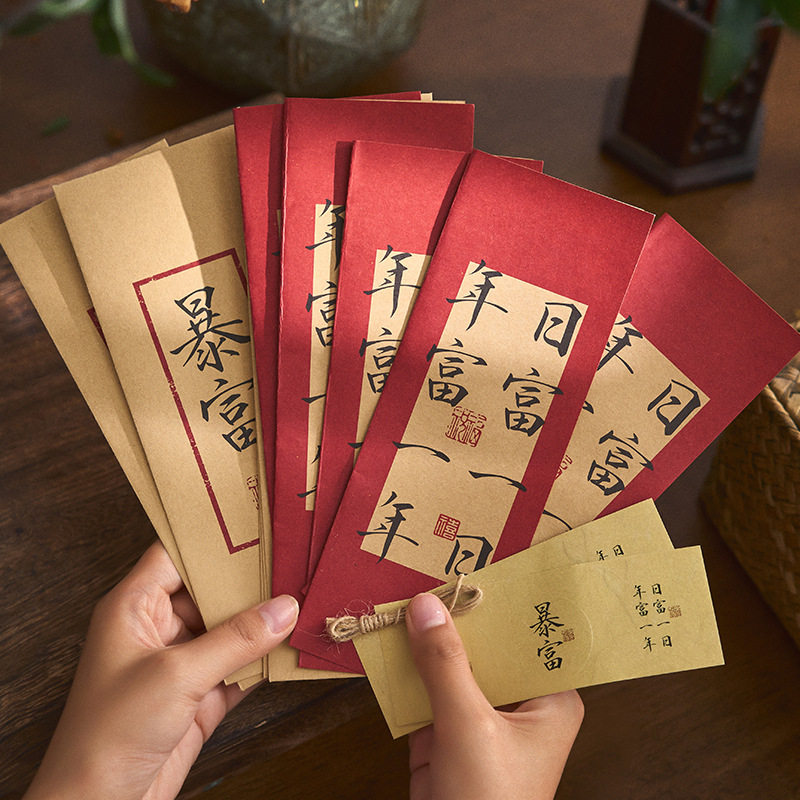 暴富
年富一年
年富一
日富一日
年富一年
日富
年
日
年
暴富
日富一日
年富一年